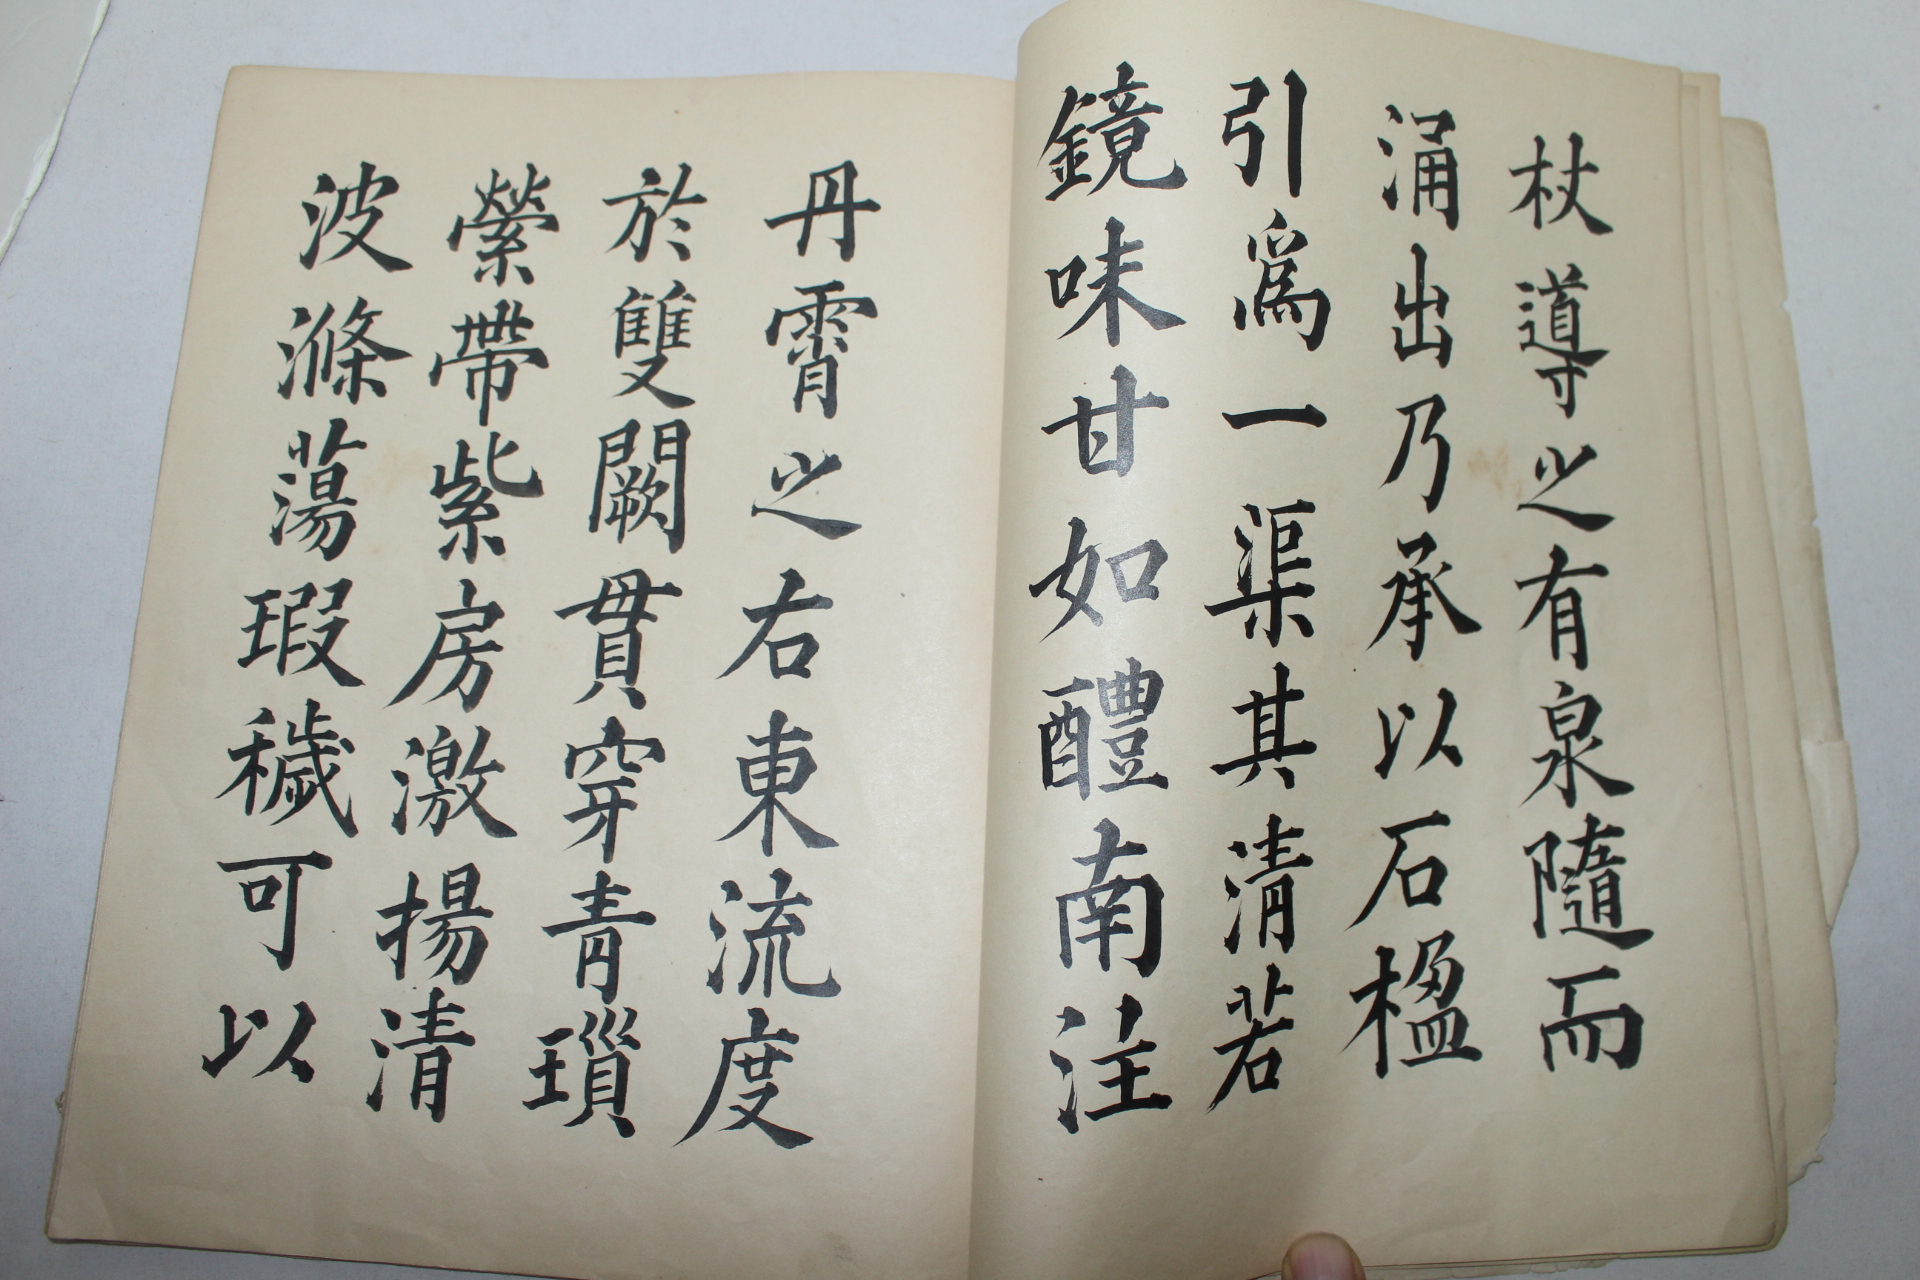 杖導之有泉隨而
涌出乃承以石楹
引爲一渠其清若
鏡味甘如醴南注
丹霄之右東流度
於雙闕貫穿青瑣
縈帶紫房激揚清
波滌蕩瑕穢可以